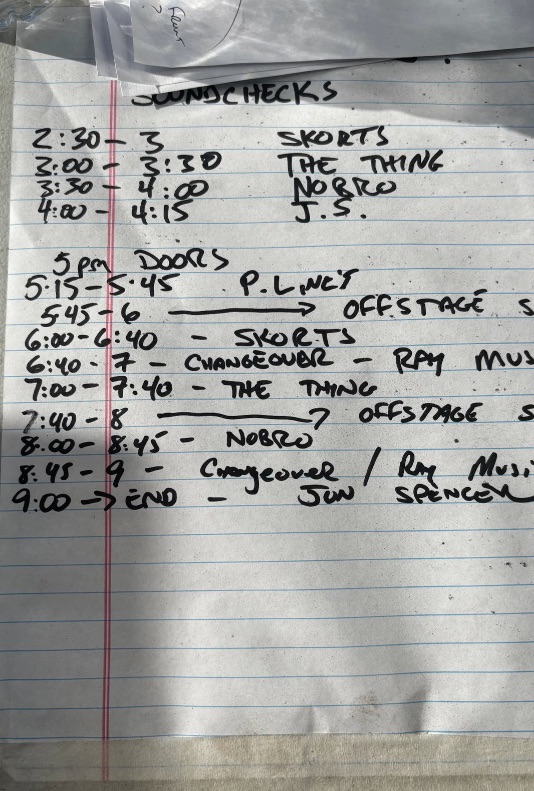 SOUNDCHECKS
2:30 - 3 SKORTS
3:00 - 3:30 THE THING
3:30 - 4:00 NOBRO
4:00 - 4:15 J.S.
5pm DOORS
5:15 - 5:45
5:45 - 6 → OFFSTAGE S
6:00 - 6:40 - SKORTS
6:40 - 7 - CHANGEOVER - RAY MUS
7:00 - 7:40 - THE THING
7:40 - 8 → OFFSTAGE S
8:00 - 8:45 - NOBRO
8:45 - 9 - Changeover / RAY MUSI
9:00 → END - JON SPENCER